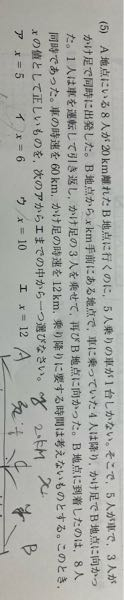 (5) A地点にいる8人が20km離れたB地点に行くのに，5人乗りの車が1台しかない。そこで，5人が車で，3人が
かけ足で同時に出発した。B地点からxkm手前にある地点で，車に乗っていた4人は降り，かけ足でB地点に向かっ
た。1人は車を運転して引き返し，かけ足の3人を乗せて，再びB地点に向かった。B地点に到着したのは，8人
同時であった。車の時速を60km，かけ足の時速を12km，乗り降りに要する時間は考えないものとする。このとき，
xの値として正しいものを，次のアからエまでの中から一つ選びなさい。
ア x＝5 イ x＝6 ウ x＝10 エ x＝12
A B